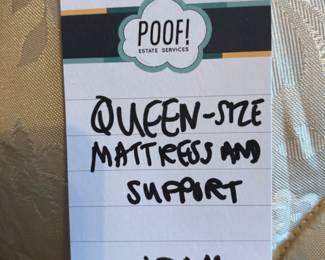 POOF!
ESTATE SERVICES
QUEEN-SIZE
MATTRESS AND
SUPPORT